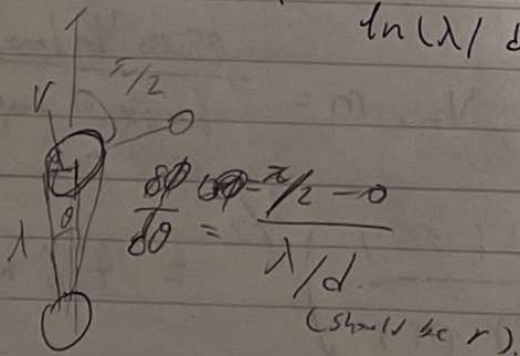 ln(λ/d
π/2
r
δφ/δθ = π/2 - 0 / λ/d
θ
λ
(should be r)